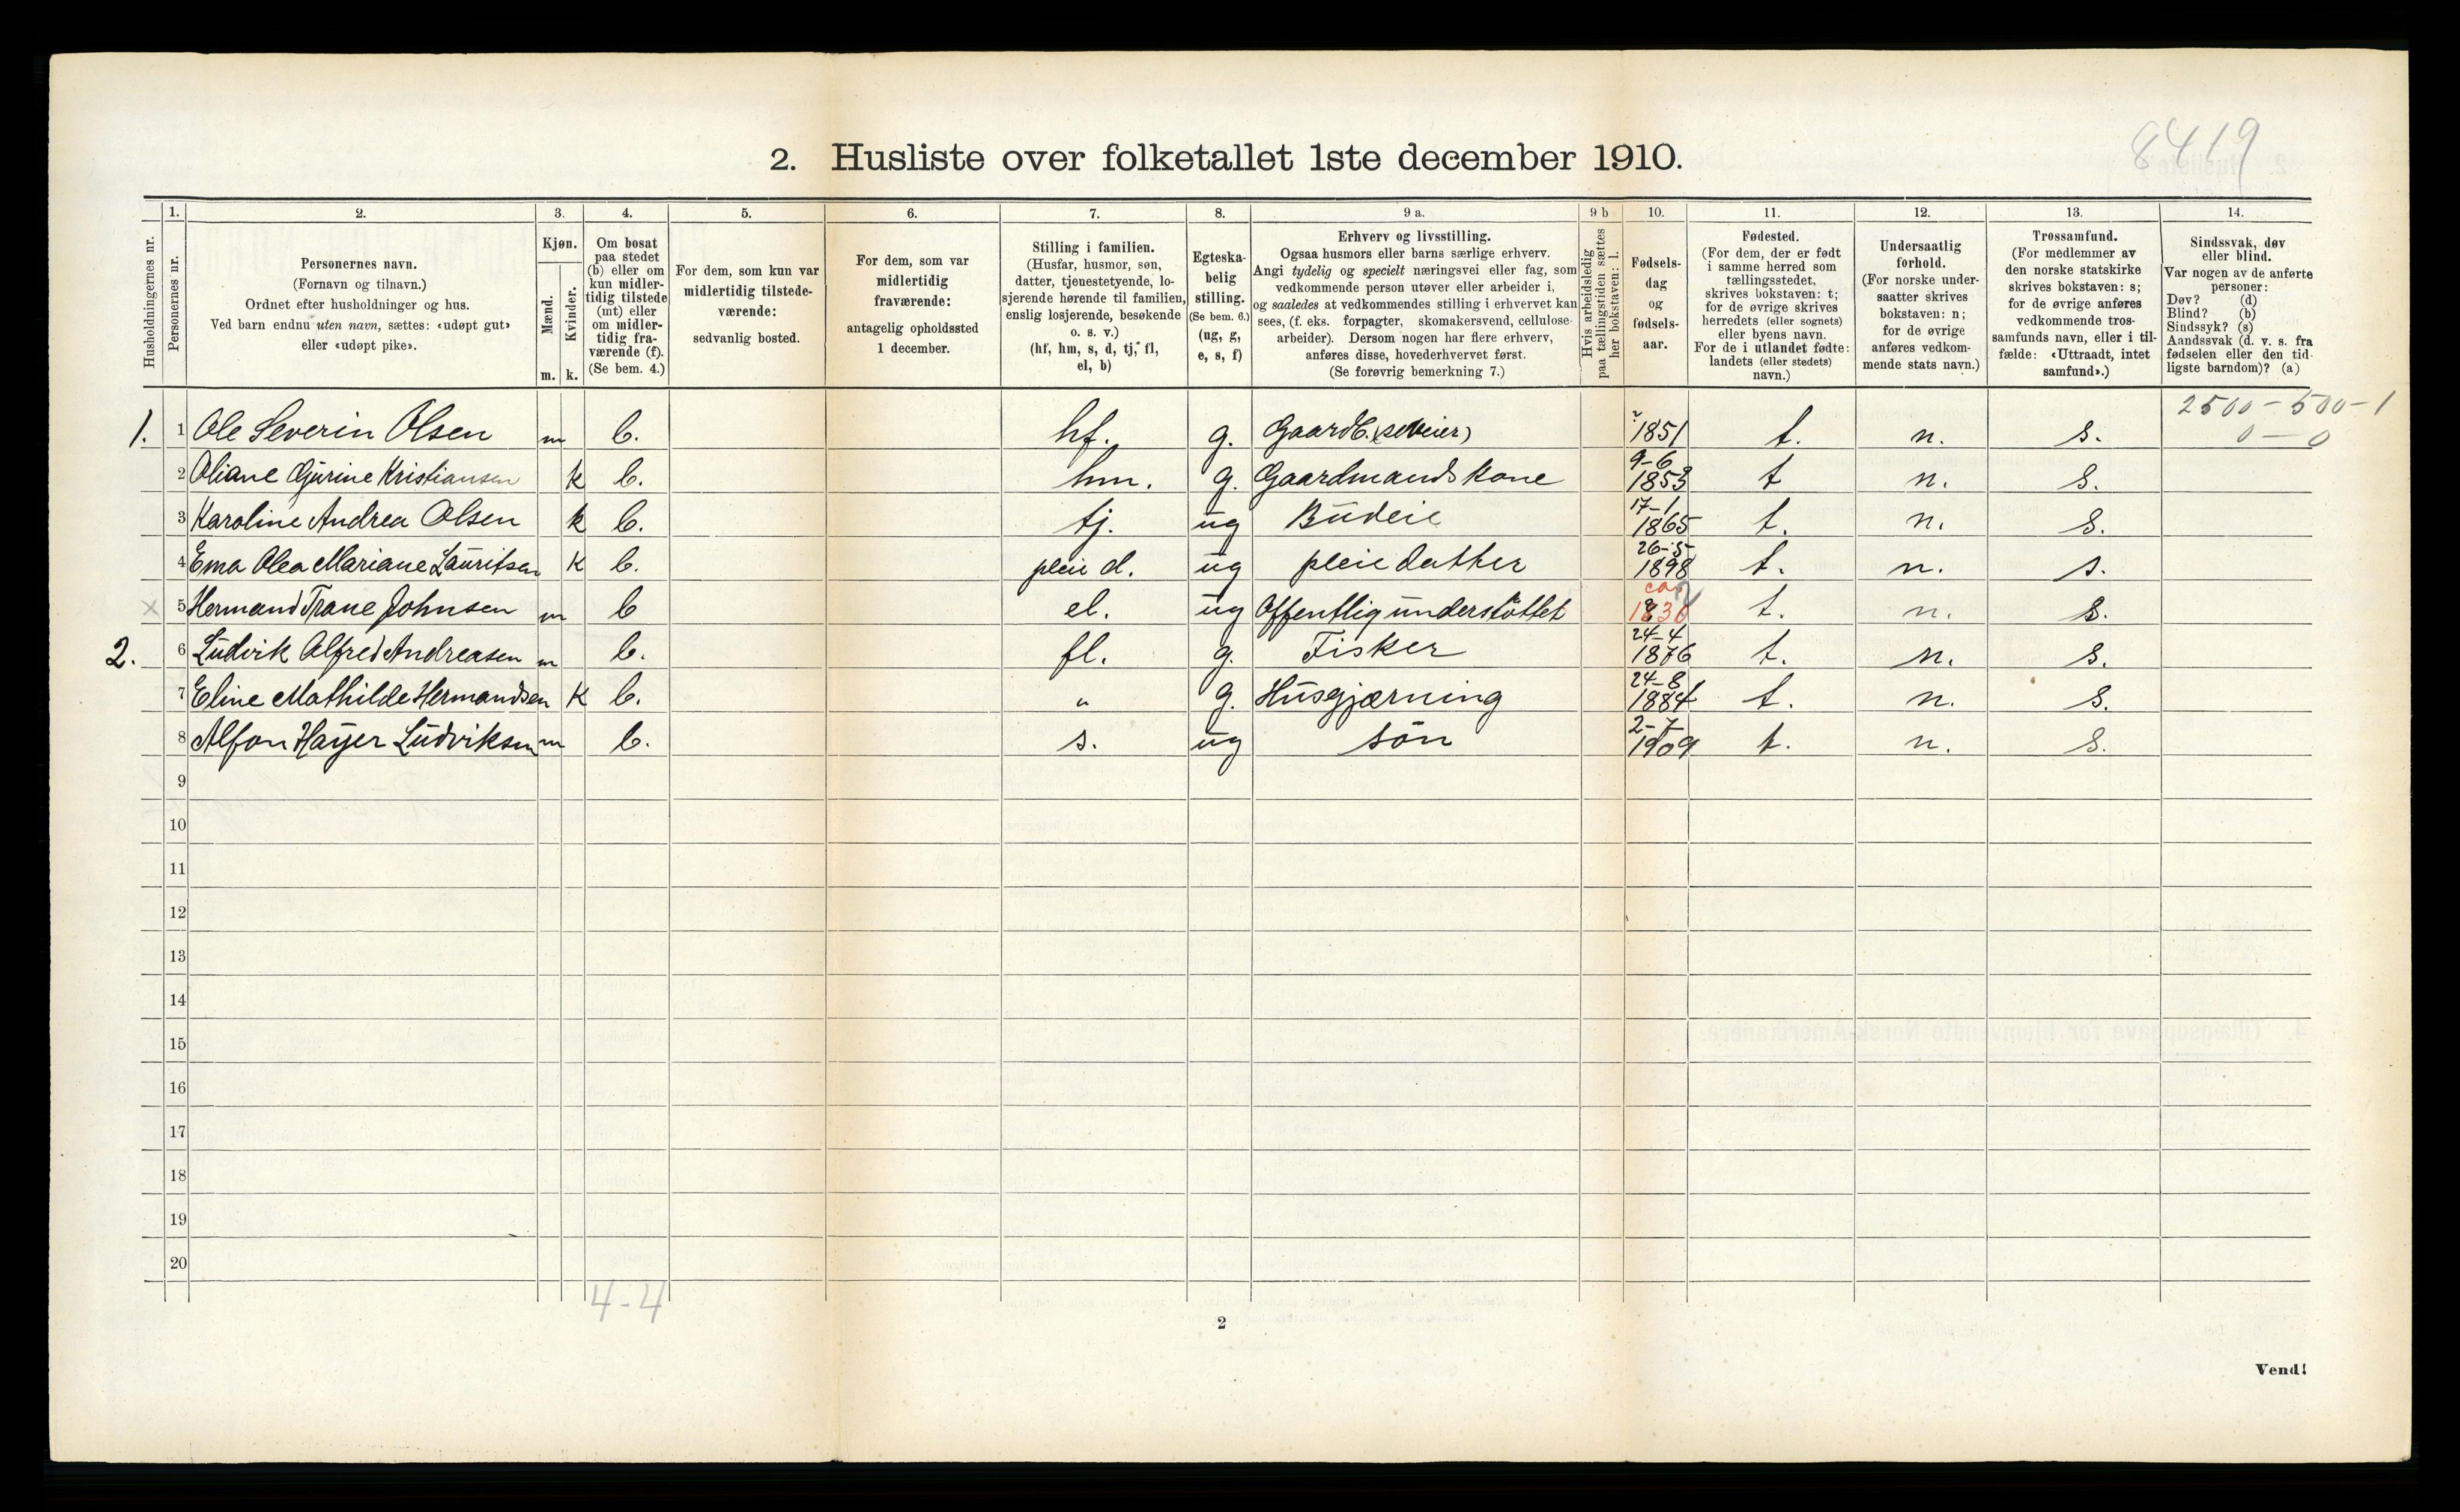 8419
2. Husliste over folketallet 1ste december 1910.
1. 2. 3. 4. 5. 6. 7. 8. 9 a. 9 b 10. 11. 12. 13. 14.
Husholdningernes nr.
Personernes nr.
Personernes navn.
(Fornavn og tilnavn.)
Ordnet efter husholdninger og hus.
Ved barn endnu uten navn, sættes: «udøpt gut»
eller «udøpt pike».
Kjøn.
Mænd.
Kvinder.
m. k.
Om bosat
paa stedet
(b) eller om
kun midler-
tidig tilstede
(mt) eller
om midler-
tidig fra-
værende (f).
(Se bem. 4.)
For dem, som kun var
midlertidig tilstede-
værende:
sedvanlig bosted.
For dem, som var
midlertidig
fraværende:
antagelig opholdssted
1 december.
Stilling i familien.
(Husfar, husmor, søn,
datter, tjenestetyende, lo-
sjerende hørende til familien,
enslig losjerende, besøkende
o. s. v.)
(hf, hm, s, d, tj, fl,
el, b)
Egteska-
belig
stilling.
(Se bem. 6.)
(ug, g,
e, s, f)
Erhverv og livsstilling.
Ogsaa husmors eller barns særlige erhverv.
Angi tydelig og specielt næringsvei eller fag, som
vedkommende person utøver eller arbeider i,
og saaledes at vedkommendes stilling i erhvervet kan
sees, (f. eks. forpagter, skomakersvend, cellulose-
arbeider). Dersom nogen har flere erhverv,
anføres disse, hovederhvervet først.
(Se forøvrig bemerkning 7.)
Hvis arbeidsledig
paa tællingstiden sættes
her bokstaven: l.
Fødsels-
dag
og
fødsels-
aar.
Fødested.
(For dem, der er født
i samme herred som
tællingsstedet,
skrives bokstaven: t;
for de øvrige skrives
herredets (eller sognets)
eller byens navn.
For de i utlandet fødte:
landets (eller stedets)
navn.)
Undersaatlig
forhold.
(For norske under-
saatter skrives
bokstaven: n;
for de øvrige
anføres vedkom-
mende stats navn.)
Trossamfund.
(For medlemmer av
den norske statskirke
skrives bokstaven: s;
for de øvrige anføres
vedkommende tros-
samfunds navn, eller i til-
fælde: «Uttraadt, intet
samfund».)
Sindssvak, døv
eller blind.
Var nogen av de anførte
personer:
Døv? (d)
Blind? (b)
Sindssyk? (s)
Aandssvak (d. v. s. fra
fødselen eller den tid-
ligste barndom)? (a)
2500 - 500 - 1
0 - 0
1. 1 Ole Severin Olsen m b. hf. g. Gaardb. (selveier) 1851 t. n. s.
2 Oliane Gjurine Kristiansen k b. hm. g. Gaardmandskone 9-6 1853 t n. s.
3 Karoline Andrea Olsen k b. tj. ug Budeie 17-1 1865 t. n. s.
4 Ema Olea Mariane Lauritsen k b. pleie d. ug pleiedatter 26-5- 1898 t. n. s.
x 5 Hermand Trane Johnsen m b el. ug Offentlig understøttet ca 1830 t. n. s.
2. 6 Ludvik Alfred Andreasen m b. fl. g. Fisker 24-4 1876 t. n. s.
7 Eline Mathilde Hermandsen k b. " g. Husgjærning 24-8 1884 t. n. s.
8 Alfon Høyer Ludviksen m b. s. ug søn 2-7- 1909 t. n. s.
9
10
11
12
13
14
15
16
17
18
19
20
4-4
2
Vend!